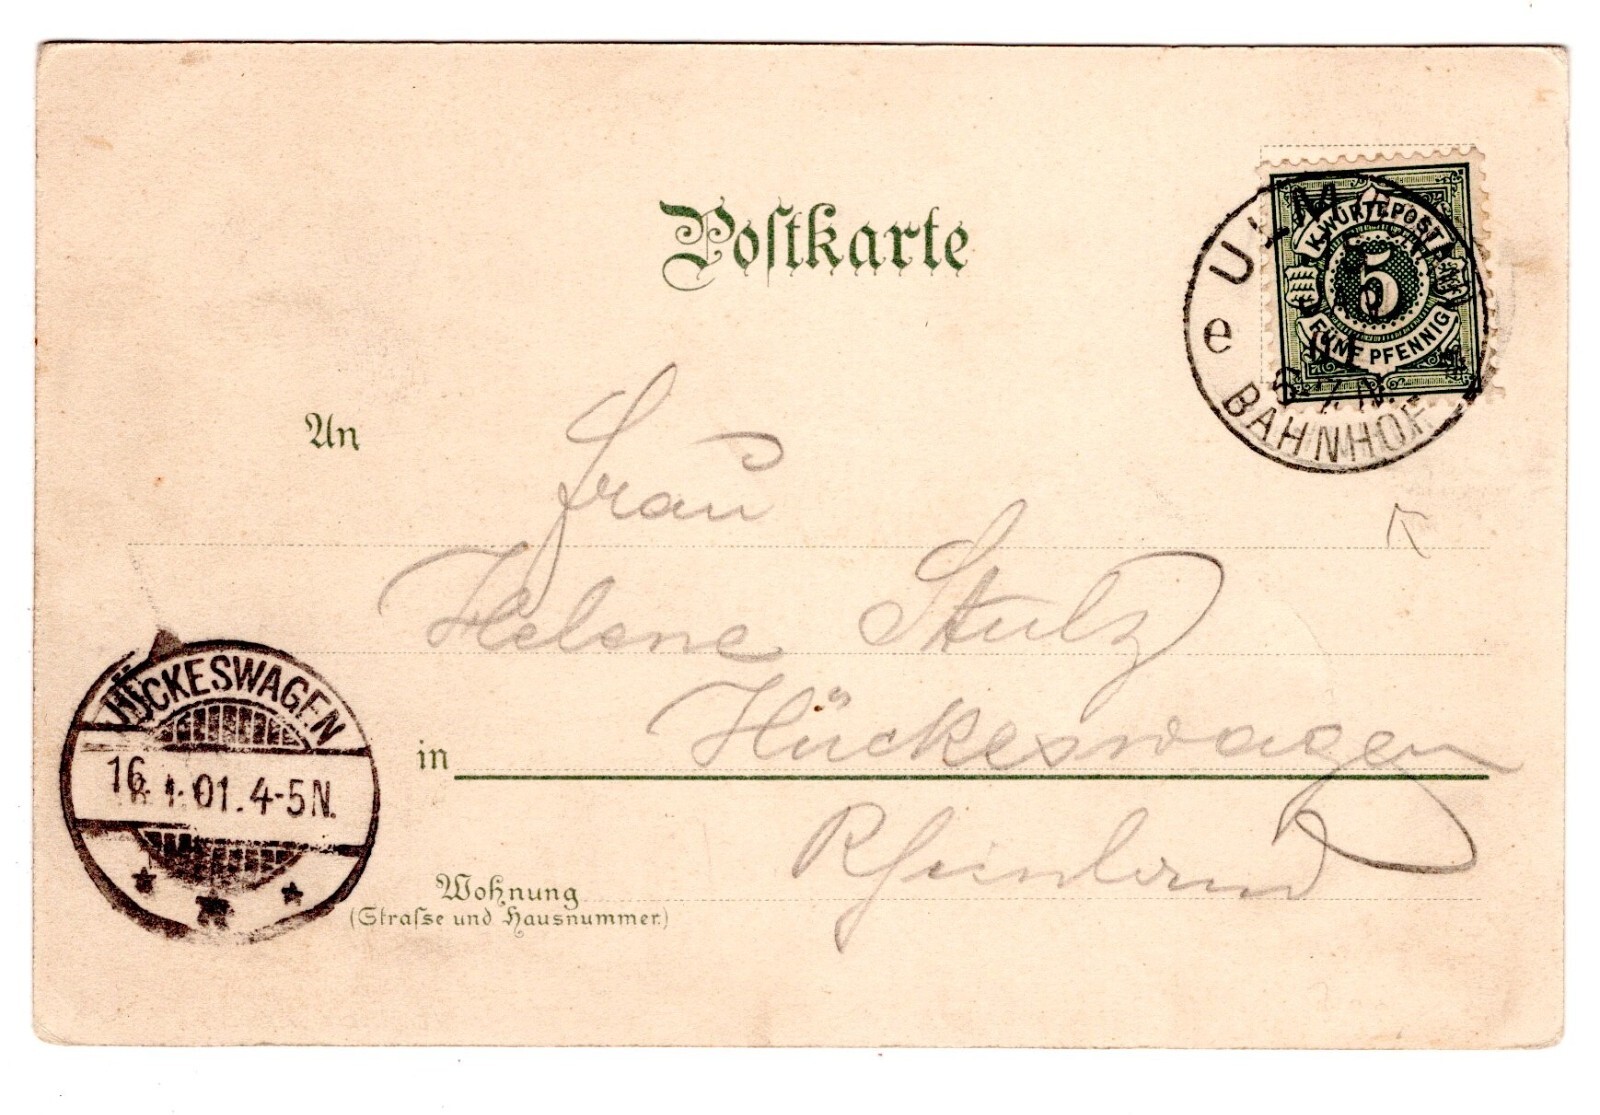 Postkarte
K.WÜRTT.POST
5
FÜNF PFENNIG
ULM
e
6-7.N.
BAHNHOF
An
Frau
Helene Stulz
in Hückeswagen
Rheinland
Wohnung
(Straſse und Hausnummer.)
HÜCKESWAGEN
16. 1. 01. 4-5N.